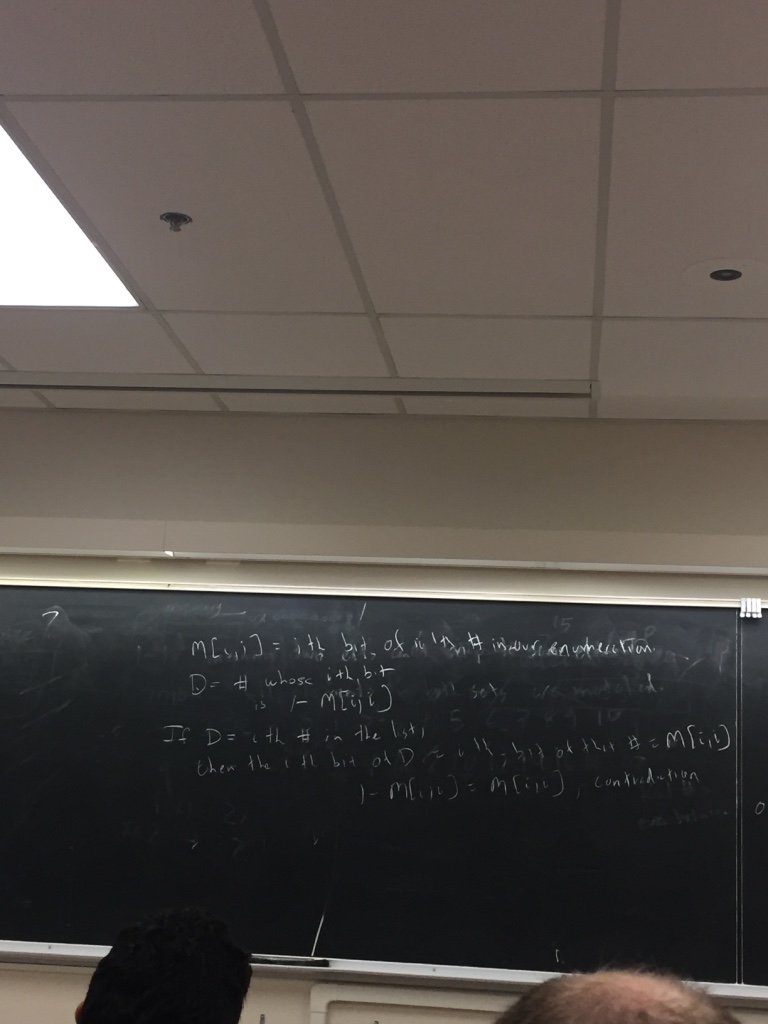 M[i,j] = jth bit of i'th # in our enumeration.
D = # whose ith bit
is 1- M[i,i]
If D = ith # in the list,
then the ith bit of D = i'th bit of that # = M[i,i]
1 - M[i,i] = M[i,i], contradiction